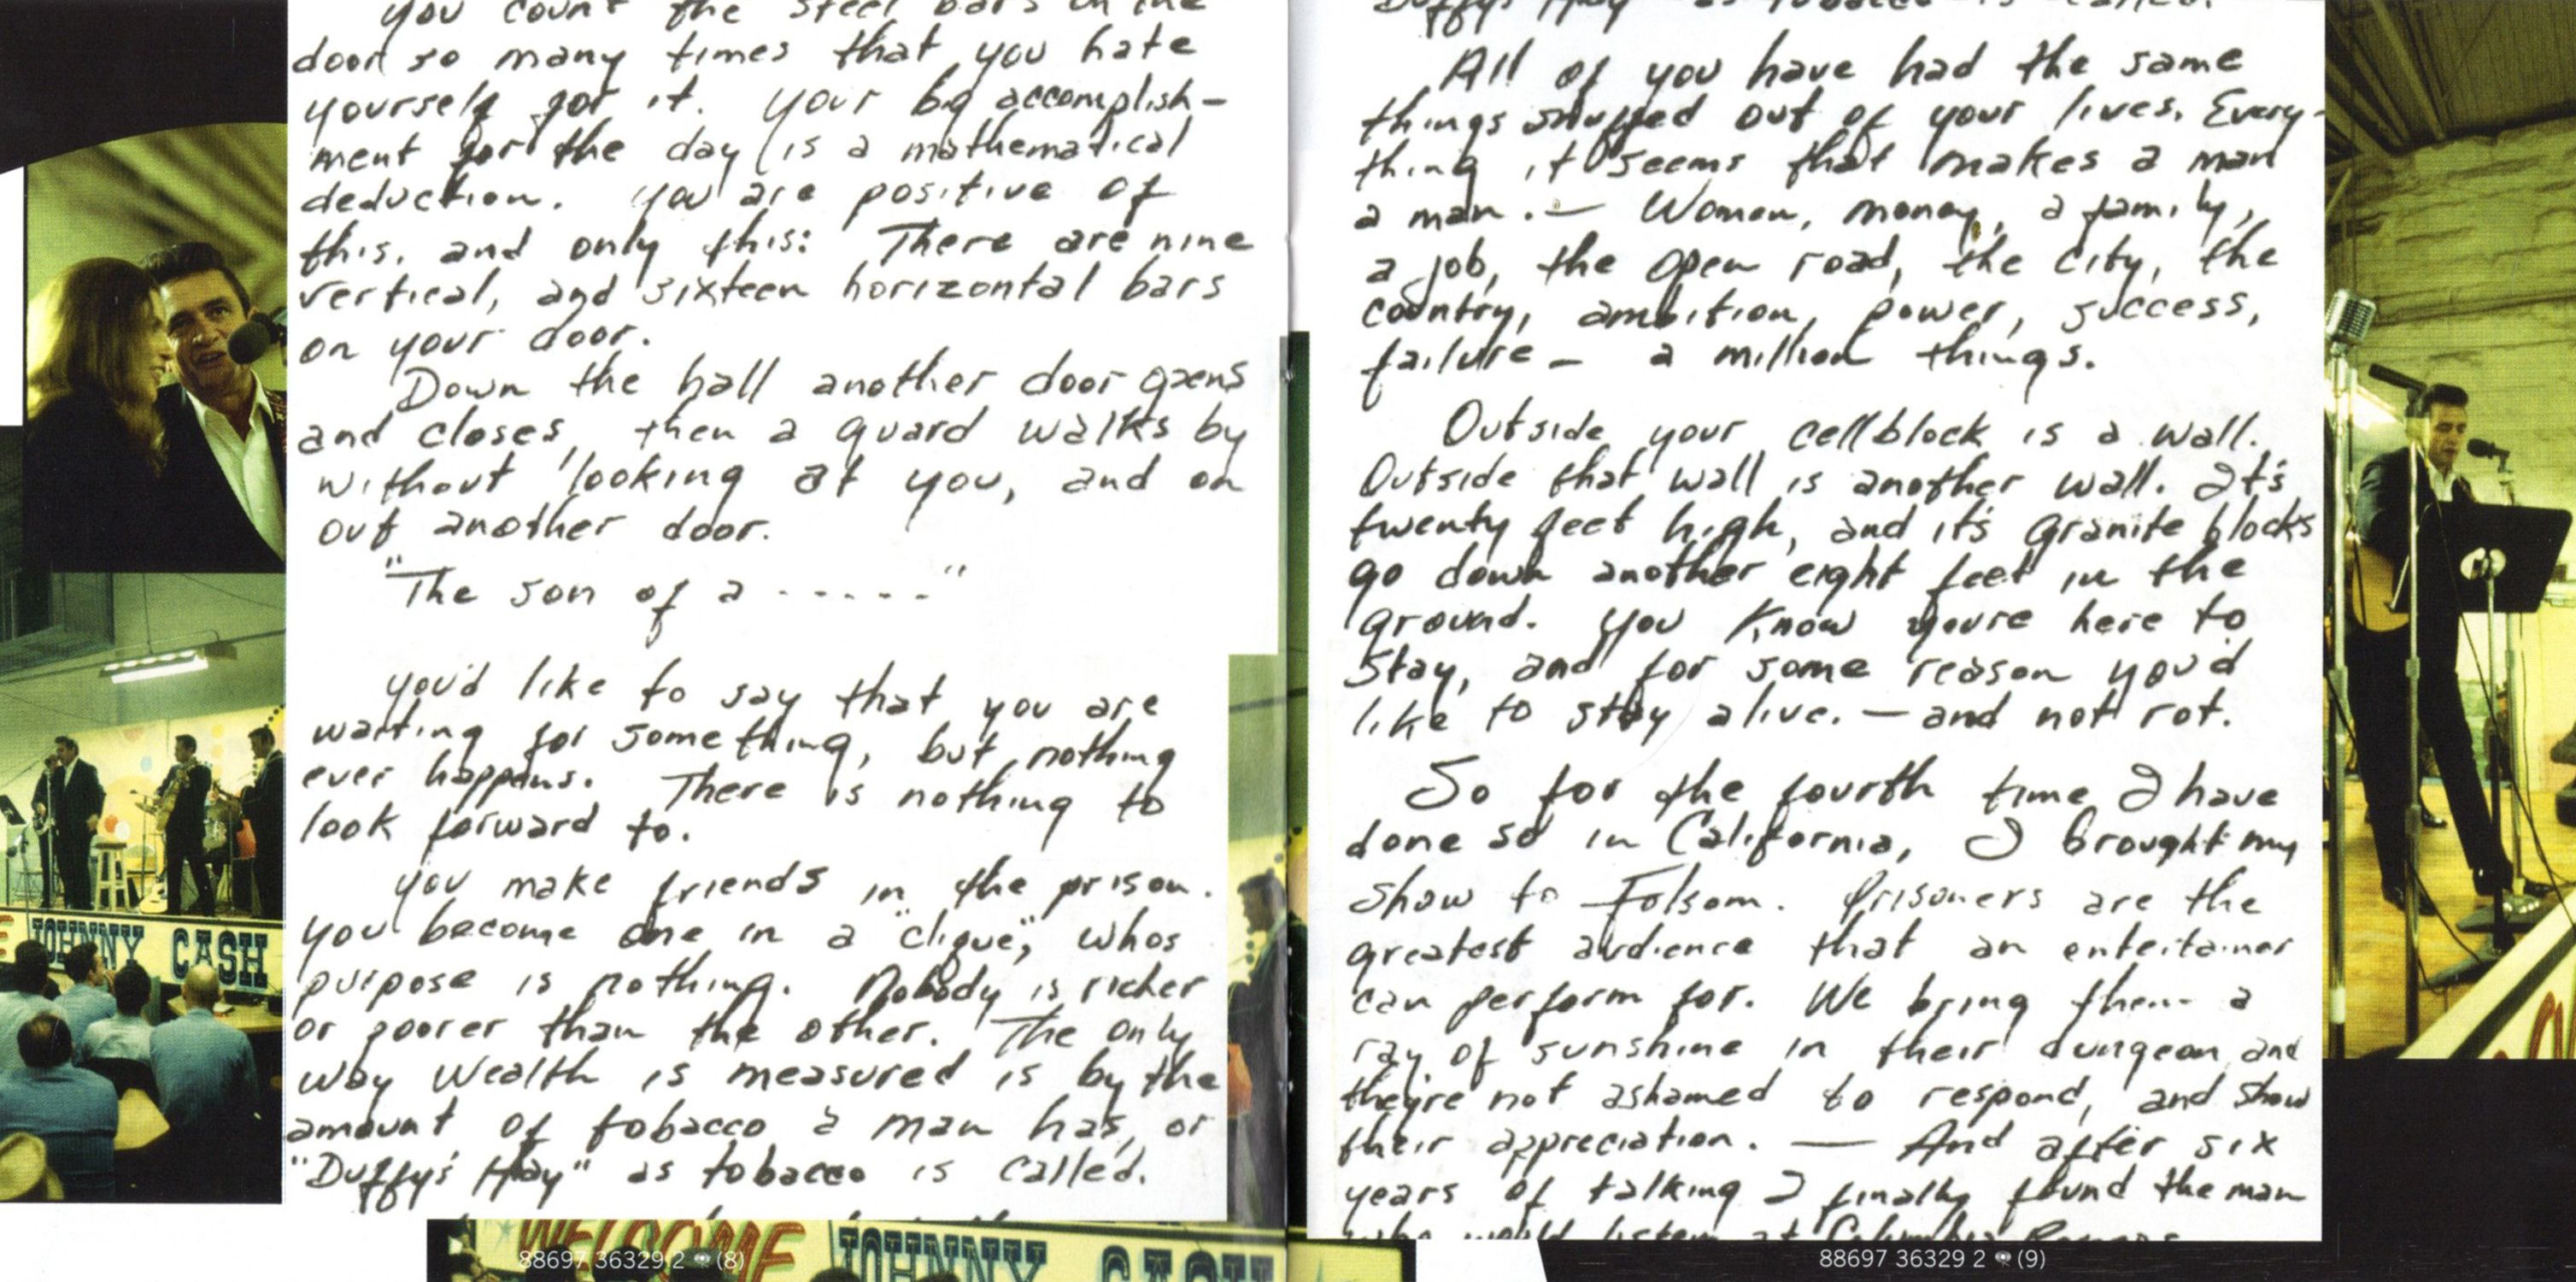 you count the steel bars in the
door so many times that you hate
yourself for it. Your big accomplish-
ment for the day is a mathematical
deduction. You are positive of
this, and only this: There are nine
vertical, and sixteen horizontal bars
on your door.
Down the hall another door opens
and closes, then a guard walks by
without looking at you, and on
out another door.
"The son of a - - - - - "
You'd like to say that you are
waiting for something, but nothing
ever happens. There is nothing to
look forward to.
You make friends in the prison.
You become one in a "clique", whos
purpose is nothing. Nobody is richer
or poorer than the other. The only
way wealth is measured is by the
amount of tobacco a man has, or
"Duffy's Hay" as tobacco is called.
JOHNNY CASH
WELCOME JOHNNY CASH
88697 36329 2 (8)
Duffy's Hay as tobacco is called.
All of you have had the same
things snuffed out of your lives. Every-
thing it seems that makes a man
a man. — Women, money, a family,
a job, the open road, the city, the
country, ambition, power, success,
failure — a million things.
Outside your cellblock is a wall.
Outside that wall is another wall. It's
twenty feet high, and it's granite blocks
go down another eight feet in the
ground. You know you're here to
stay, and for some reason you'd
like to stay alive. — and not rot.
So for the fourth time I have
done so in California, I brought my
show to Folsom. Prisoners are the
greatest audience that an entertainer
can perform for. We bring them a
ray of sunshine in their dungeon and
they're not ashamed to respond, and show
their appreciation. — And after six
years of talking I finally found the man
who would listen at Columbia Records
88697 36329 2 (9)